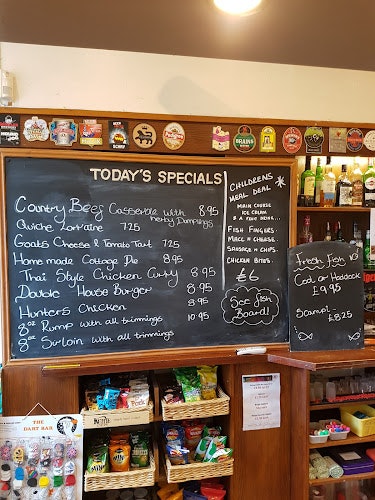 TODAY'S SPECIALS
Country Beef Casserole with Herby Dumplings 8.95
Quiche Lorraine 7.25
Goats Cheese & Tomato Tart 7.25
Home made Cottage Pie 8.95
Thai Style Chicken Curry 8.95
Double House Burger 8.95
Hunters Chicken 8.95
8oz Rump with all trimmings 10.95
8oz Sirloin with all trimmings
CHILDRENS
MEAL DEAL
MAIN COURSE
ICE CREAM
FISH FINGERS.
MACC N CHEESE.
SAUSAGE N CHIPS.
CHICKEN BITES.
£6
See fish
Board!
Fresh Fish
Cod, or Haddock
£9.95
Scampi £8.25
THE
DART BAR
BRAINS